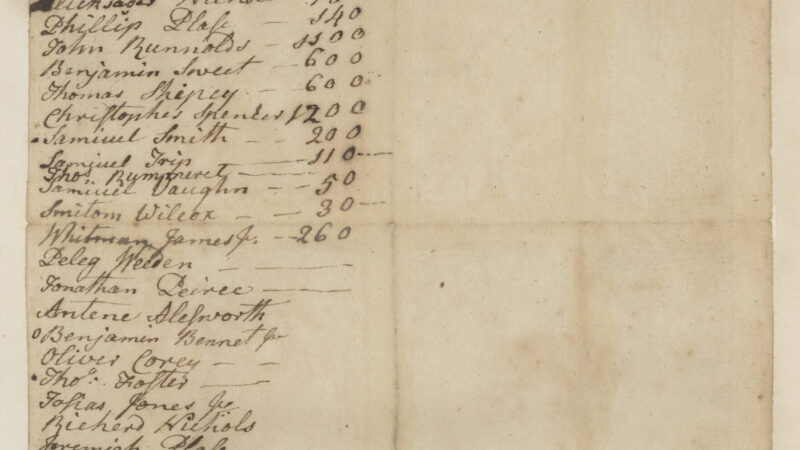 Phillip Plase 140
John Runnolds – 1100
Benjamin Sweet – 600
Thomas Shipey – 600
Christopher Spencer 1200
Samiuel Smith – 200
Samiuel Trip – 110
Thos.
Samiuel Vaughn – – 50
Smitom Wilcox – – 30
Whitman James Jr. – 260
Peleg Weeden – –
Jonathan Peirce –
Antene Alesworth
Benjamin Bennet Jr
Oliver Corey – –
Thos. Foster – –
Josias Jones Jr
Richerd Nichols
Jeremiah Plase